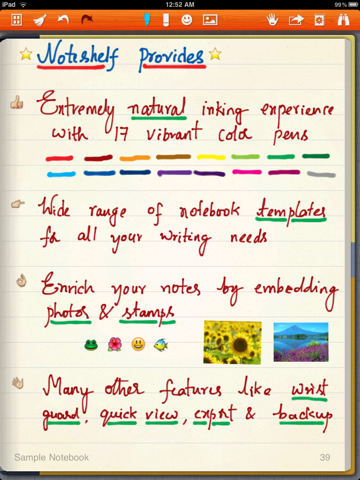 iPad
12:52 AM
99%
Noteshelf Provides
Extremely natural inking experience
with 17 vibrant color pens
Wide range of notebook templates
for all your writing needs
Enrich your notes by embedding
photos & stamps
Many other features like wrist
guard, quick view, export & backup
Sample Notebook
39